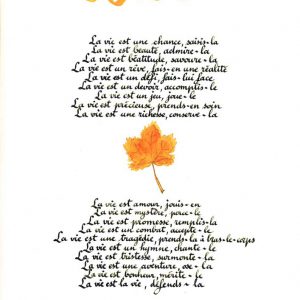 La vie est une chance, saisis-la
La vie est beauté, admire-la
La vie est béatitude, savoure-la
La vie est un rêve, fais-en une réalité
La vie est un défi, fais-lui face
La vie est un devoir, accomplis-le
La vie est un jeu, joue-le
La vie est précieuse, prends-en soin
La vie est une richesse, conserve-la
La vie est amour, jouis-en
La vie est mystère, perce-le
La vie est promesse, remplis-la
La vie est un combat, accepte-le
La vie est une tragédie, prends-la à bras-le-corps
La vie est un hymne, chante-le
La vie est tristesse, surmonte-la
La vie est une aventure, ose-la
La vie est bonheur, mérite-le
La vie est la vie, défends-la